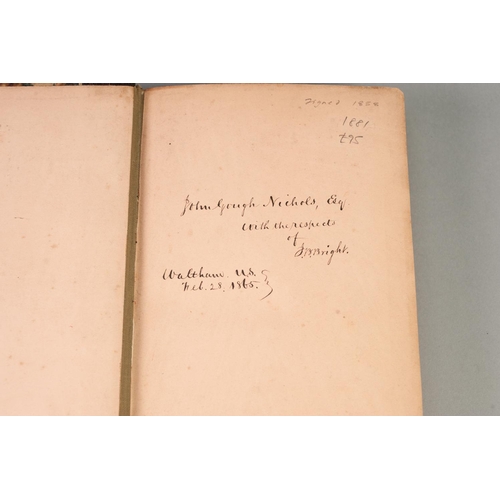 signed 1858
1881
£95
John Gough Nichols, Esq.
with the respects
of
J.B. Bright.
Waltham. U.S.
Feb. 28. 1865.